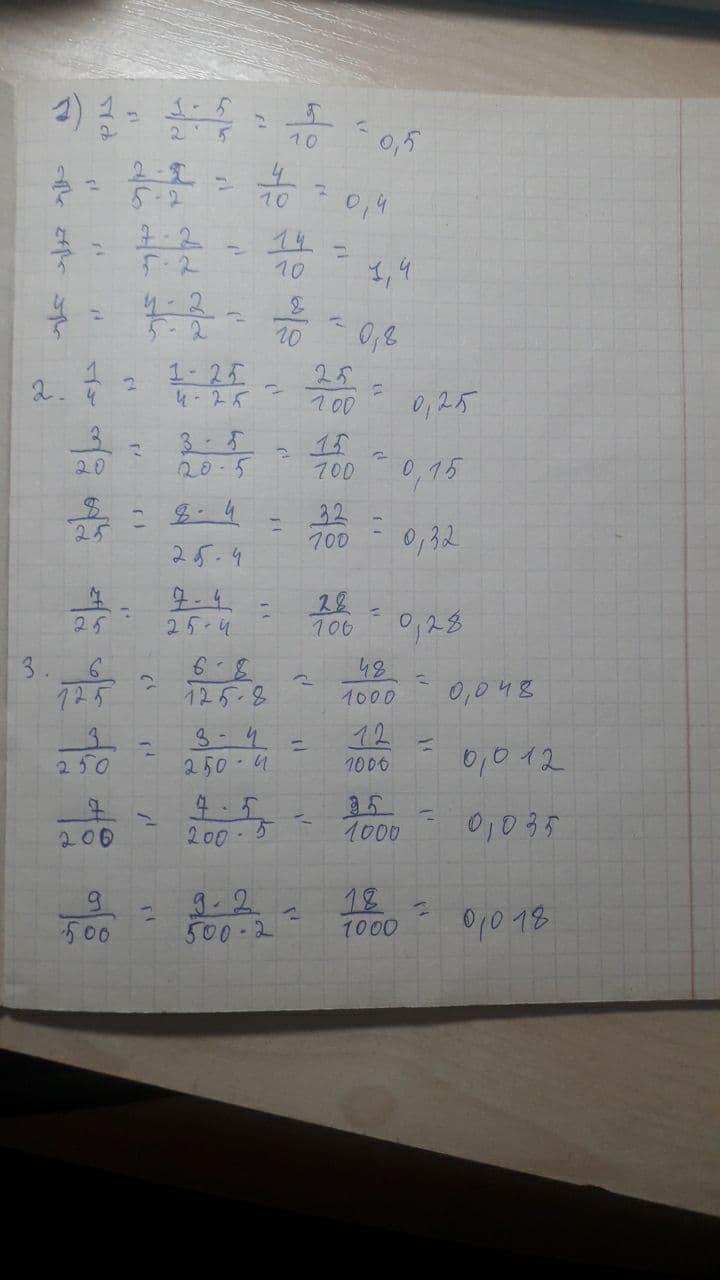 1) 1/2 = 1·5/2·5 = 5/10 = 0,5
2/5 = 2·2/5·2 = 4/10 = 0,4
7/5 = 7·2/5·2 = 14/10 = 1,4
4/5 = 4·2/5·2 = 8/10 = 0,8
2. 1/4 = 1·25/4·25 = 25/100 = 0,25
3/20 = 3·5/20·5 = 15/100 = 0,15
8/25 = 8·4/25·4 = 32/100 = 0,32
7/25 = 7·4/25·4 = 28/100 = 0,28
3. 6/125 = 6·8/125·8 = 48/1000 = 0,048
3/250 = 3·4/250·4 = 12/1000 = 0,012
7/200 = 7·5/200·5 = 35/1000 = 0,035
9/500 = 9·2/500·2 = 18/1000 = 0,018